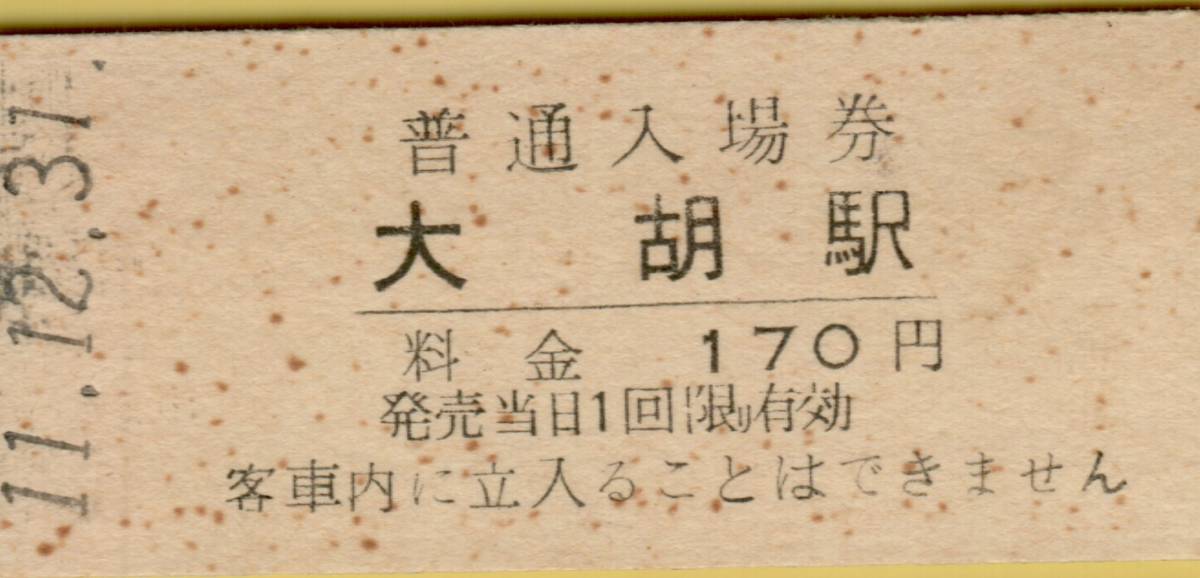 11.12.31.
普通入場券
大胡駅
料金 170円
発売当日1回限り有効
客車内に立入ることはできません